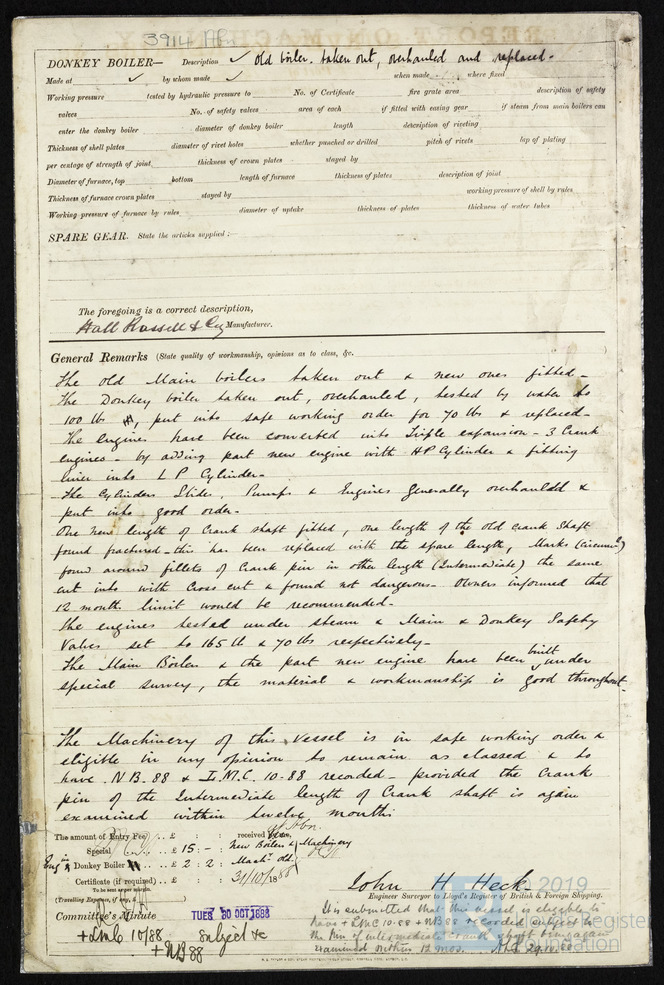 3914 Abn
DONKEY BOILER— Description ✓ Old boiler. taken out, overhauled and replaced-
Made at ✓ by whom made ✓ when made where fixed
Working pressure tested by hydraulic pressure to No. of Certificate fire grate area description of safety
valves No. of safety valves area of each if fitted with easing gear if steam from main boilers can
enter the donkey boiler diameter of donkey boiler length description of riveting
Thickness of shell plates diameter of rivet holes whether punched or drilled pitch of rivets lap of plating
per centage of strength of joint thickness of crown plates stayed by
Diameter of furnace, top bottom length of furnace thickness of plates description of joint
Thickness of furnace crown plates stayed by working pressure of shell by rules
Working pressure of furnace by rules diameter of uptake thickness of plates thickness of water tubes
SPARE GEAR. State the articles supplied:—
The foregoing is a correct description,
Hall Russell & Coy Manufacturer.
General Remarks (State quality of workmanship, opinions as to class, &c.
The Old Main boilers taken out & new ones fitted-
The Donkey boiler taken out, overhauled, tested by water to
100 lbs, put into safe working order for 70 lbs & replaced-
The engines have been converted into Triple expansion - 3 Crank
engines - by adding part new engine with HP Cylinder & fitting
liner into L P Cylinder-
The Cylinders Slides, Pumps & Engines generally overhauled &
put into good order-
One new length of Crank shaft fitted, one length of the old Crank Shaft
found fractured - this has been replaced with the spare length, Marks (circumfl)
found around fillets of Crank pin in other length (Intermediate) the same
cut into with Cross cut & found not dangerous - Owners informed that
12 months limit would be recommended-
The engines tested under steam & Main & Donkey Safety
Valves set to 165 lb & 70 lbs respectively-
The Main Boilers & the part new engine have been built under
special survey, the material & workmanship is good throughout-
The Machinery of this vessel is in safe working order &
eligible in my opinion to remain as classed & to
have N B. 88 & L.M.C. 10-88 recorded - provided the Crank
pin of the Intermediate length of Crank shaft is again
examined within twelve months
The amount of Entry Fee .. £ : : received
Special .. £ 15 : - : New Boilers & Machinery
Donkey Boiler .. £ 2 : 2 : Machy old
Certificate (if required) .. £ : : 31/10/1888
To be sent as per margin.
(Travelling Expenses, if any, £ )
John H. Heck
Engineer Surveyor to Lloyd's Register of British & Foreign Shipping.
Committee's Minute TUES 30 OCT 1888
+ LMC 10/88 subject &c
+ NB 88
It is submitted that this vessel is eligible to
have + LMC 10.88 & NB 88 recorded subject to
the Pin of intermediate crank shaft being again
examined within 12 mos. 29.10.88
2019
Lloyd's Register
Foundation